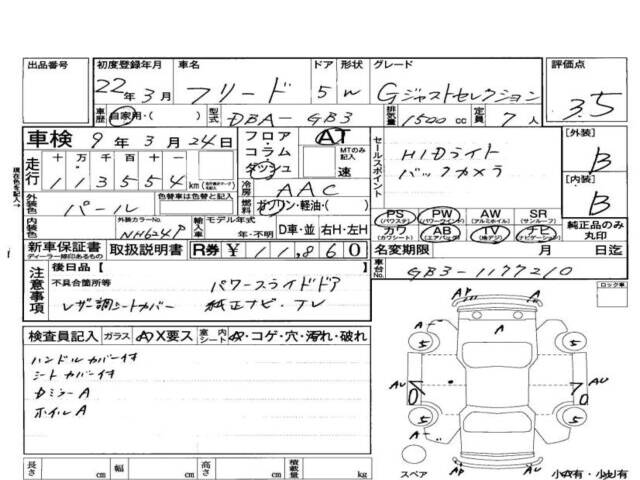 出品番号 初度登録年月 車名 ドア 形状 グレード 評価点
22年3月 フリード 5 W Gジャストセレクション 3.5
車歴 自家用・( ) 型式 DBA-GB3 排気量 1500 cc 定員 7人
車検 9年3月24日 フロア・コラム・ダッシュ AT MTのみ記入 速
セールスポイント HIDライト
バックカメラ
[外装] B
[内装] B
現在色を記入→
走行 十万千百十 113554 km
冷房 AAC
燃料 ガソリン・軽油・( )
外装色 パール 色替車は色替と記入
外装カラーNo. NH624P 輸入車 モデル年式 年・不明 D車・並 右H・左H
PS (パワステ) PW (パワーウインド) AW (アルミホイル) SR (サンルーフ)
カワ (カワシート) AB (エアバッグ) TV (地デジ) ナビ (ナビゲーション)
純正品のみ丸印
新車保証書 ディーラー捺印あるもの 取扱説明書 R券 ¥11,860 名変期限 月 日迄
車台No. GB3-1177210
注意事項 後日品 [ ]
不具合箇所等 パワースライドドア
レザー調シートカバー 純正ナビ・TV
ロック車
検査員記入 ガラス A X要ス 室内 内シート AP・コゲ・穴・汚れ・破れ
ハンドルカバー付
シートカバー付
Dミラー A
ホイル A
AP A AP
5 5
AU AU
5 5
スペア
小A有・小U有
長さ cm 幅 cm 高さ cm 積載量 kg